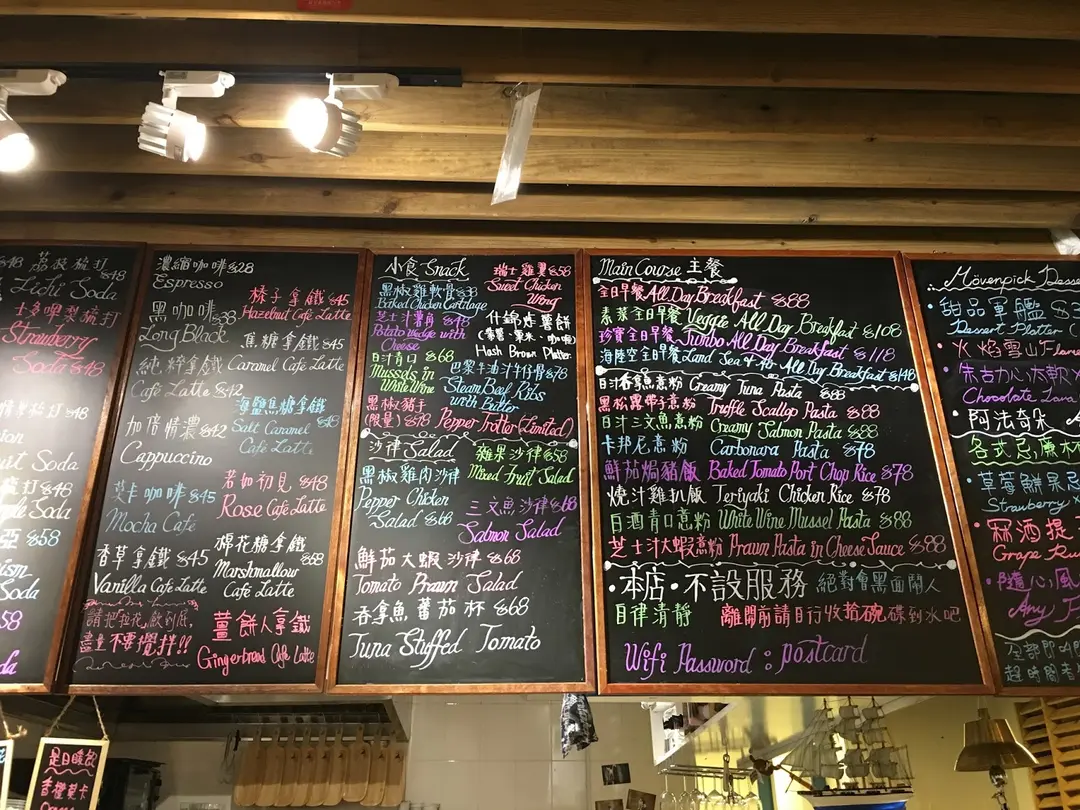 荔枝梳打
Lichi Soda $48
士多啤梨梳打
Strawberry
Soda $48
Soda
Soda
濃縮咖啡 $28
Espresso
黑咖啡 $38
Long Black
純粹拿鐵
Cafe Latte $42
加倍情濃 $42
Cappuccino
莫卡咖啡 $45
Mocha Cafe
香草拿鐵 $45
Vanilla Cafe Latte
請把拉花飲到底,
盡量不要攪拌!!
榛子拿鐵 $45
Hazelnut Cafe Latte
焦糖拿鐵 $45
Caramel Cafe Latte
海鹽焦糖拿鐵
Salt Caramel $48
Cafe Latte
若如初見 $48
Rose Cafe Latte
棉花糖拿鐵
Marshmallow $68
Cafe Latte
薑餅人拿鐵
Gingerbread Cafe Latte
小食 Snack
黑椒雞軟骨 $38
Baked Chicken Cartilage
芝士薯角 $48
Potato Wedge with
Cheese
日汁青口 $68
Mussels in
White Wine
黑椒豬手
(限量) $78 Pepper Trotter (Limited)
瑞士雞翼 $58
Sweet Chicken
Wing
什錦炸薯餅
Hash Brown Platter
巴黎牛油汁牛仔骨 $78
Steam Beef Ribs
with Butter
沙律 Salad
黑椒雞肉沙律
Pepper Chicken
Salad $68
蘋果沙律 $58
Mixed Fruit Salad
三文魚沙律 $68
Salmon Salad
鮮茄大蝦沙律 $68
Tomato Prawn Salad
吞拿魚蕃茄杯 $68
Tuna Stuffed Tomato
Main Course 主餐
全日早餐 All Day Breakfast $88
素菜全日早餐 Veggie All Day Breakfast $108
珍寶全日早餐 Jumbo All Day Breakfast $118
海陸空全日早餐 Land Sea & Air All Day Breakfast $148
白汁吞拿魚意粉 Creamy Tuna Pasta $88
黑松露帶子意粉 Truffle Scallop Pasta $88
白汁三文魚意粉 Creamy Salmon Pasta $88
卡邦尼意粉 Carbonara Pasta $78
鮮茄焗豬飯 Baked Tomato Port Chop Rice $78
燒汁雞扒飯 Teriyaki Chicken Rice $78
白酒青口意粉 White Wine Mussel Pasta $88
芝士汁大蝦意粉 Prawn Pasta in Cheese Sauce $88
·本店·不設服務 絕對會黑面鬧人
自律清靜 離開前請自行收拾碗碟到水吧
Wifi Password : postcard
Mövenpick
甜品軍艦
Dessert Platter
火焰雪山
朱古力心太軟
Chocolate Lava
阿法奇朵
Strawberry
Any
是日暖飲
香橙莫卡